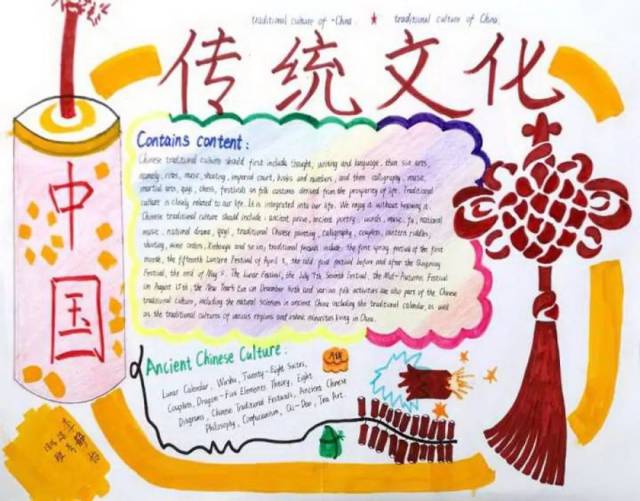 traditional culture of China. ★ traditional culture of China.
传统文化
中国
Contains content:
Chinese traditional culture should first include thought, writing and language, then six arts,
namely, rites, music, shooting, imperial court, books and numbers, and then calligraphy, music,
martial arts, quyi, chess, festivals an folk customs derived from the prosperity of life. Traditional
culture is closely related to our life. It is integrated into our life. We enjoy it without knowing it.
Chinese traditional culture should include: ancient prose, ancient poetry, words, music, fu, national
music, national drama, quyi, traditional Chinese painting, calligraphy, couplets, lantern riddles,
shooting, wine orders, Xiehouyu and so on; traditional festivals include: the first spring festival of the first
month, the fifteenth Lantern Festival of April 5, the cold food festival before and after the Qingming
Festival, the end of May 5. The Lunar Festival, the July 7th Seventh Festival, the Mid-Autumn Festival
on August 15th, the New Year's Eve on December 30th and various folk activities are also part of the Chinese
traditional culture, including the natural sciences in ancient China including the traditional calendar, as well
as the traditional cultures of various regions and ethnic minorities living in China.
Ancient Chinese Culture:
Lunar Calendar, Wushu, Twenty-Eight Suites,
Couplets, Dragon-Five Elements Theory, Eight
Diagrams, Chinese Traditional Festivals, Ancient Chinese
Philosophy, Confucianism, Qi-Dao, Tea Art.